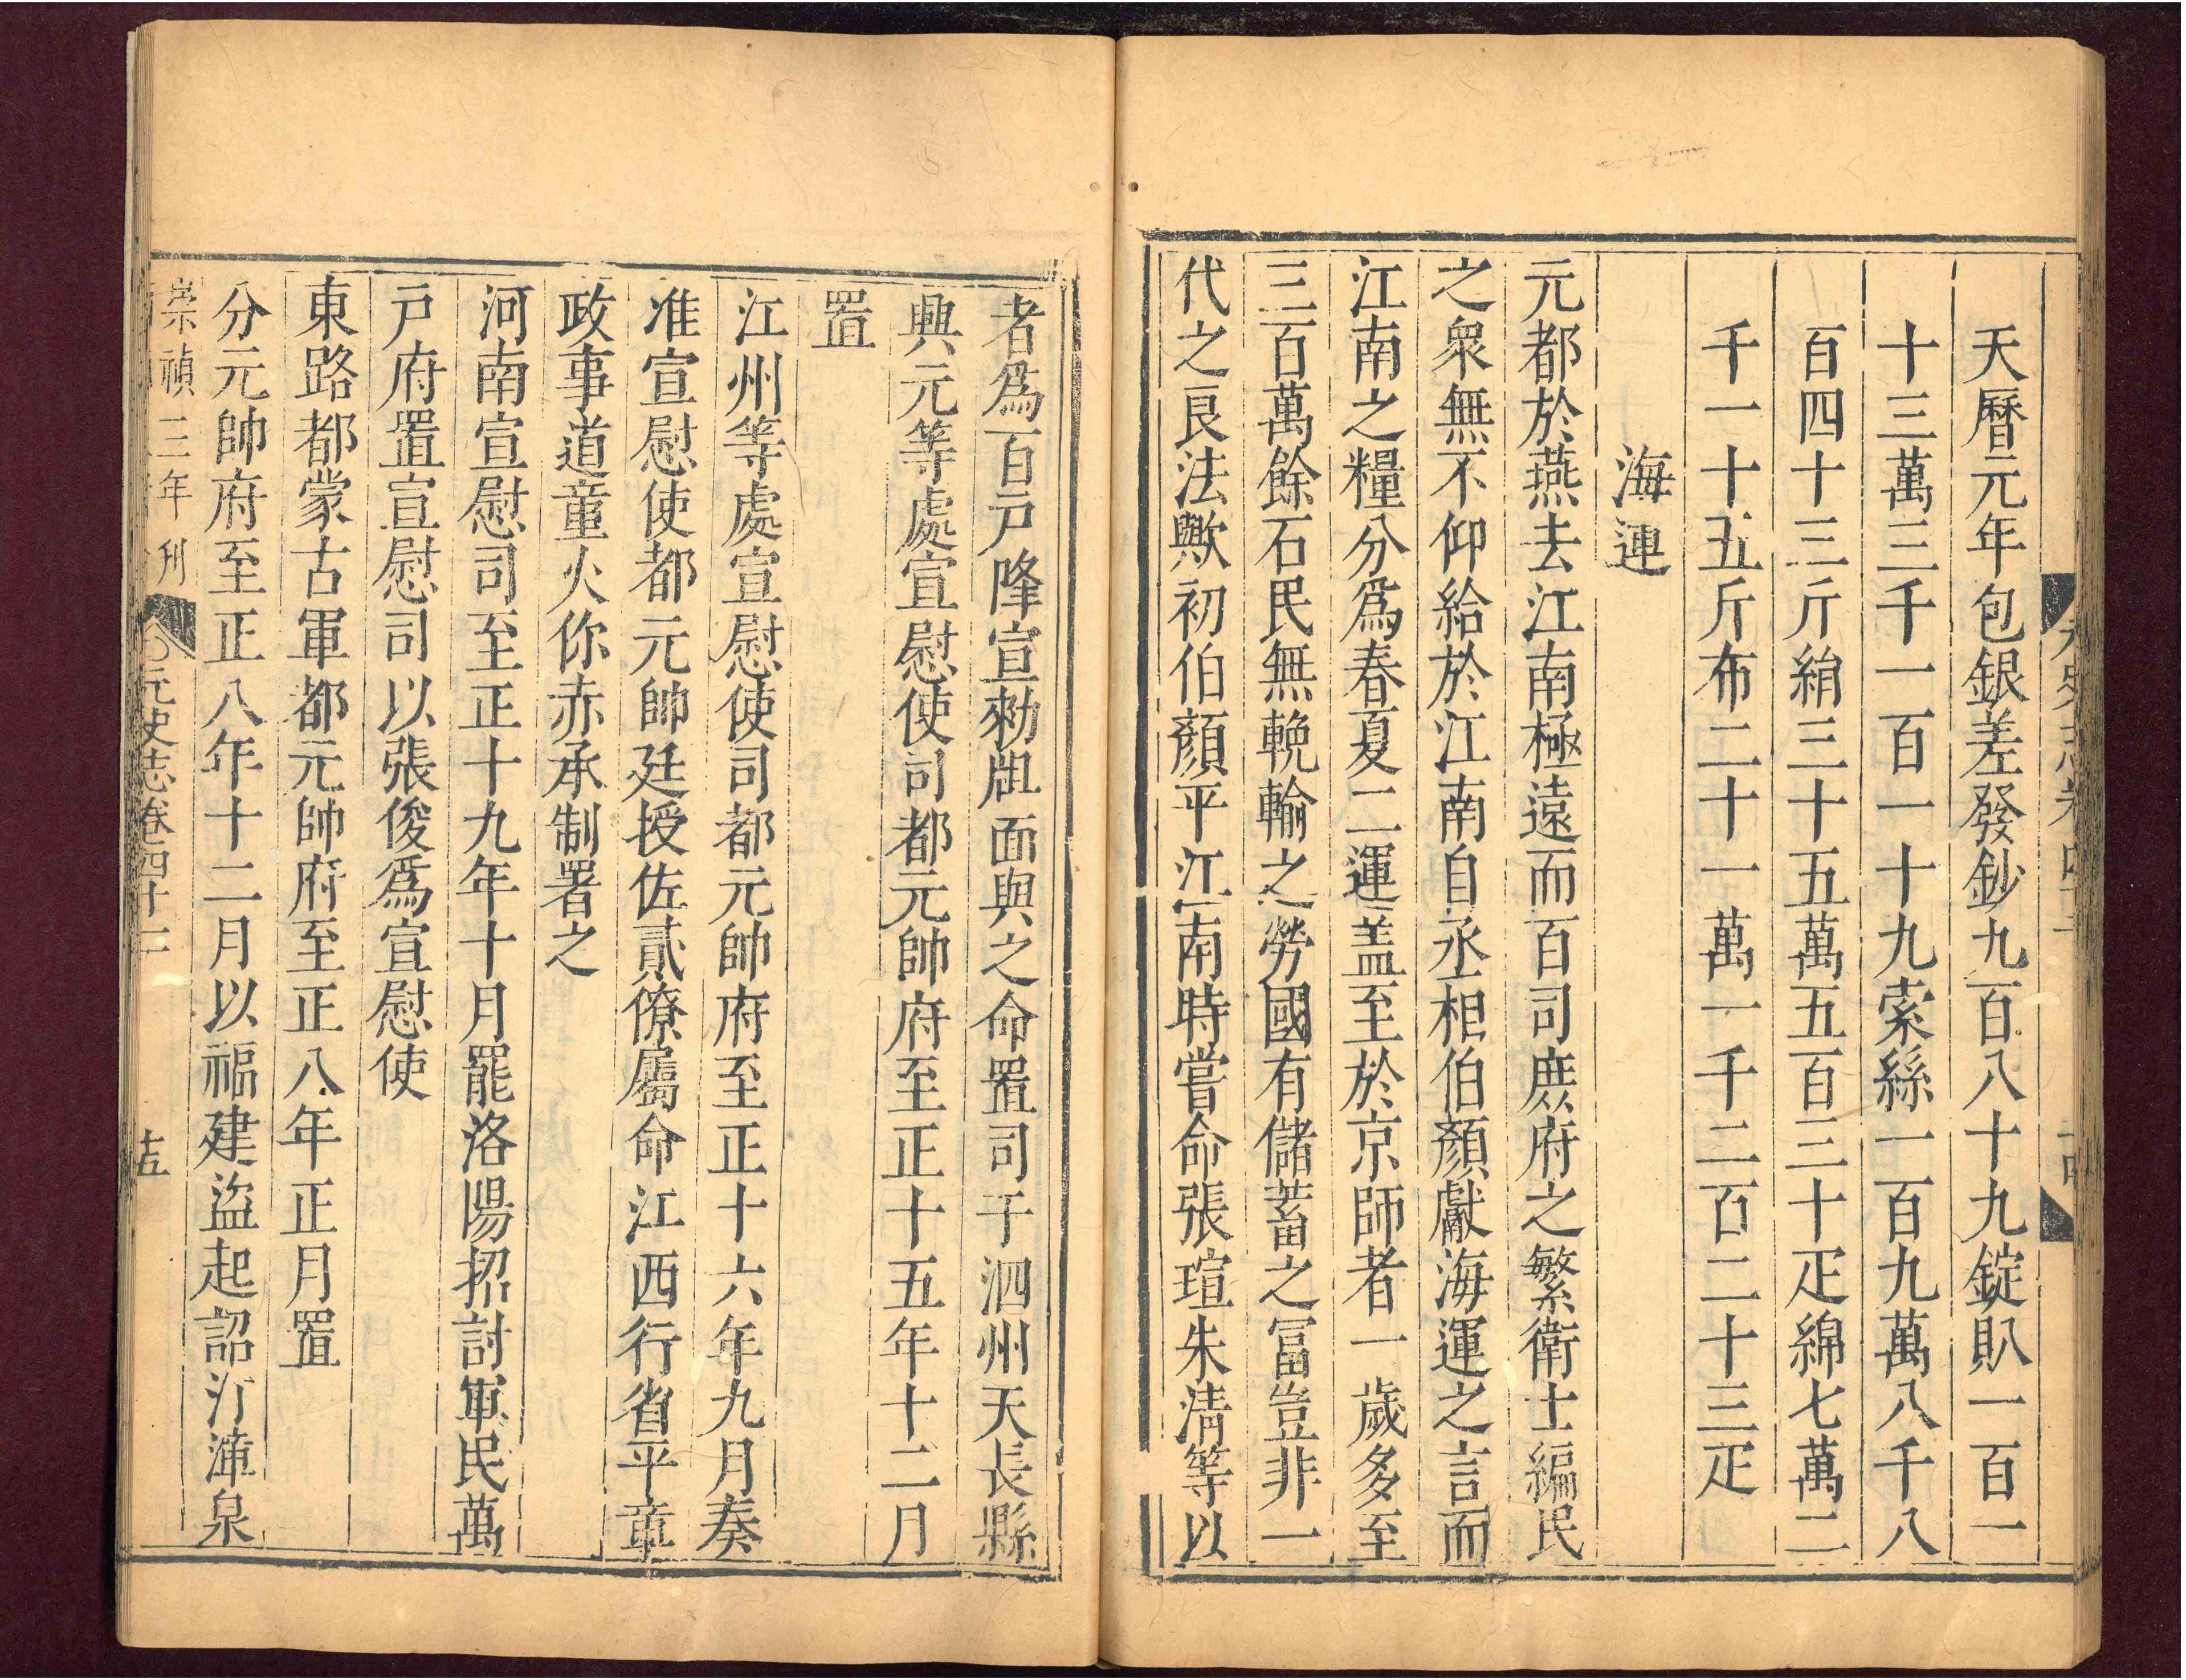 天曆元年包銀差發鈔九百八十九錠䝤一百一
十三萬三千一百一十九索絲一百九萬八千八
百四十三斤絹三十五萬五百三十疋綿七萬二
千一十五斤布二十一萬一千二百二十三疋
海運
元都於燕去江南極遠而百司庶府之繁衛士編民
之衆無不仰給於江南自丞相伯顏獻海運之言而
江南之糧分爲春夏二運盖至於京師者一歲多至
三百萬餘石民無輓輸之勞國有儲蓄之冨豈非一
代之良法歟初伯顏平江南時嘗命張瑄朱淸等以
者爲百戸隆宣勑牌面與之命置司于泗州天長縣
興元等處宣慰使司都元帥府至正十五年十二月
置
江州等處宣慰使司都元帥府至正十六年九月奏
准宣慰使都元帥廷授佐貳僚屬命江西行省平章
政事道童火你赤承制署之
河南宣慰司至正十九年十月罷洛陽招討軍民萬
戸府置宣慰司以張俊爲宣慰使
東路都蒙古軍都元帥府至正八年正月置
分元帥府至正八年十二月以福建盜起詔汀漳泉
崇禎三年刊
元史志卷四十二
十五